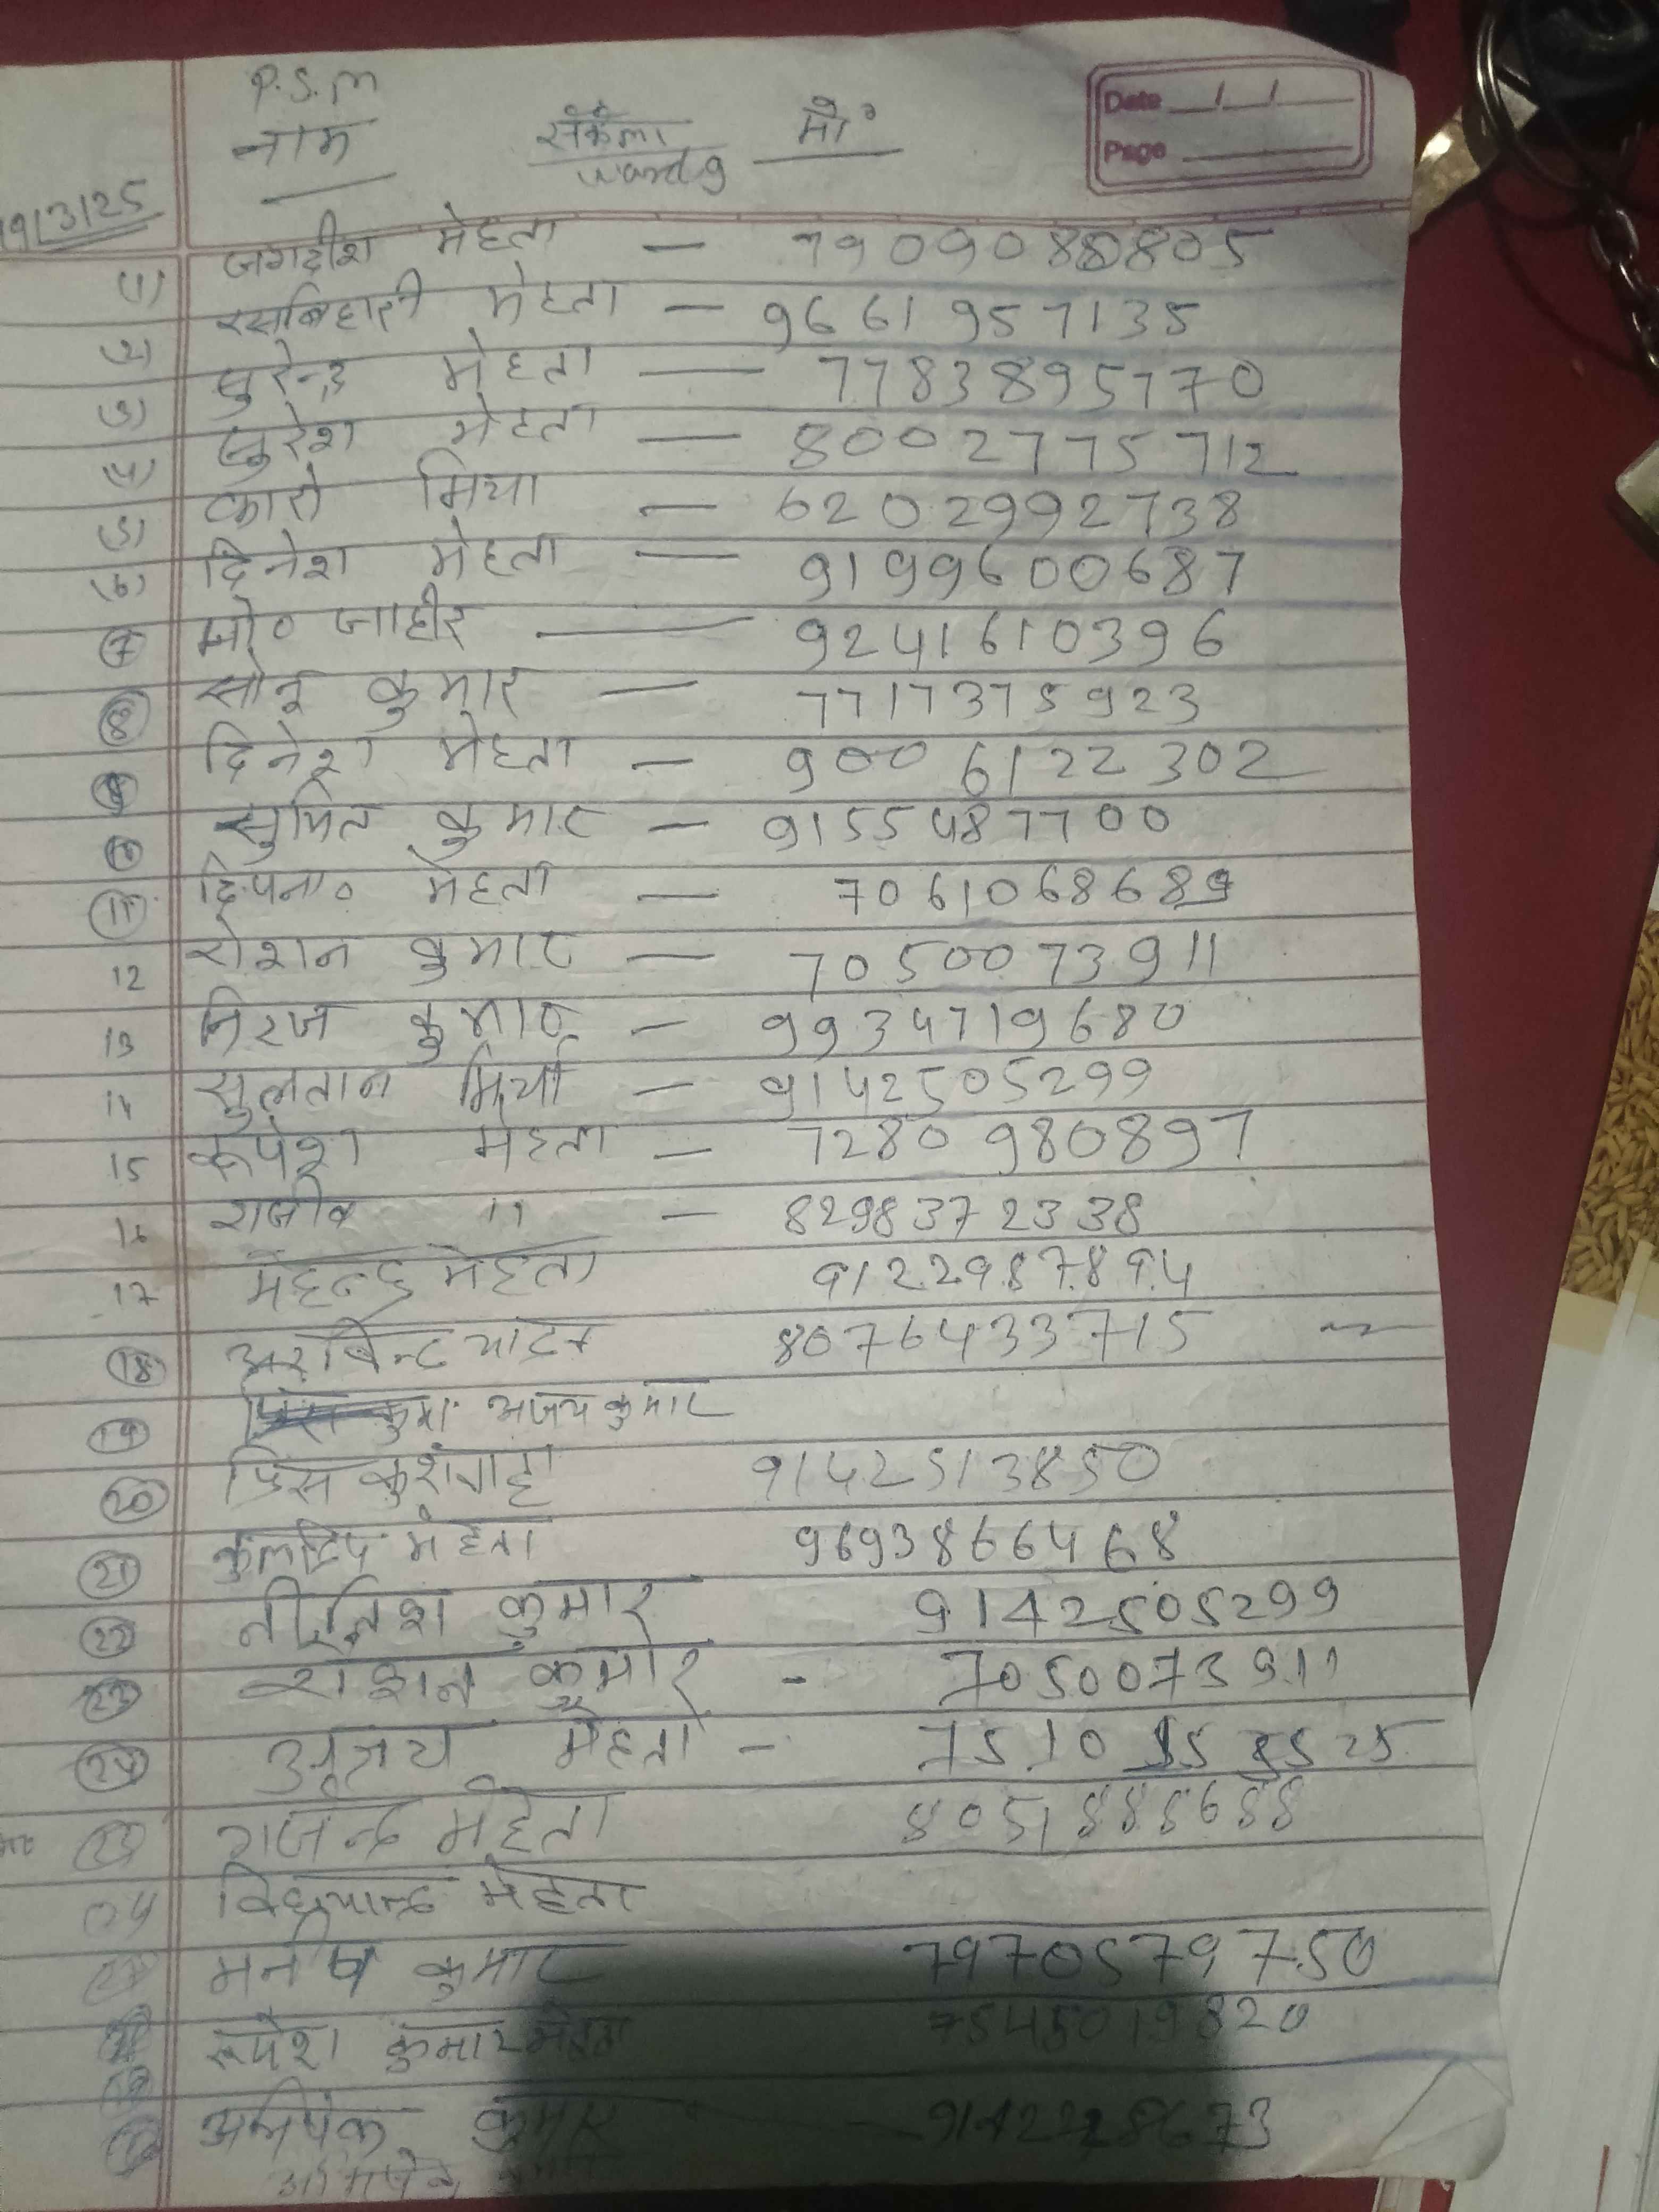 P.S.M
Date / /
नाम सेकेला मो०
ward 9
Page
19/3/25
(1) जगदीश मेहता — 7909080805
(2) रासबिहारी मेहता — 9661957135
(3) सुरेन्द्र मेहता — 7783895770
(4) सुरेश मेहता — 8002775712
(5) कारो मिया — 6202992738
(6) दिनेश मेहता — 9199600687
(7) मो० जाहीर — 9241610396
(8) सोनू कुमार — 7717375923
(9) दिनेश मेहता — 9006122302
(10) सुमित कुमार — 9155487700
(11) दिपना० मेहता — 7061068689
12 रोशन कुमार — 7050073911
13 निरज कुमार — 9934719680
14 सुलतान मियाँ — 9142505299
15 रूपेश मेहता — 7280980897
16 राजीव " — 8298372338
17 महेन्द्र मेहता 9122987894
(18) अरबिन्द यादव 8076433715
(19) अजय कुमार
(20) प्रिंस कुशवाहा 9142513850
(21) कुलदिप मेहता 9693866468
(22) नीतिश कुमार 9142505299
(23) रौशन कुमार - 7050073911
(24) अजय मेहता - 7510
राजेन्द्र मेहता 8051888688
मेहता
मनीष कुमार 7970579750
रूपेश कुमार मेहता 7545019820
अभिषेक कुमार
अभिषेक